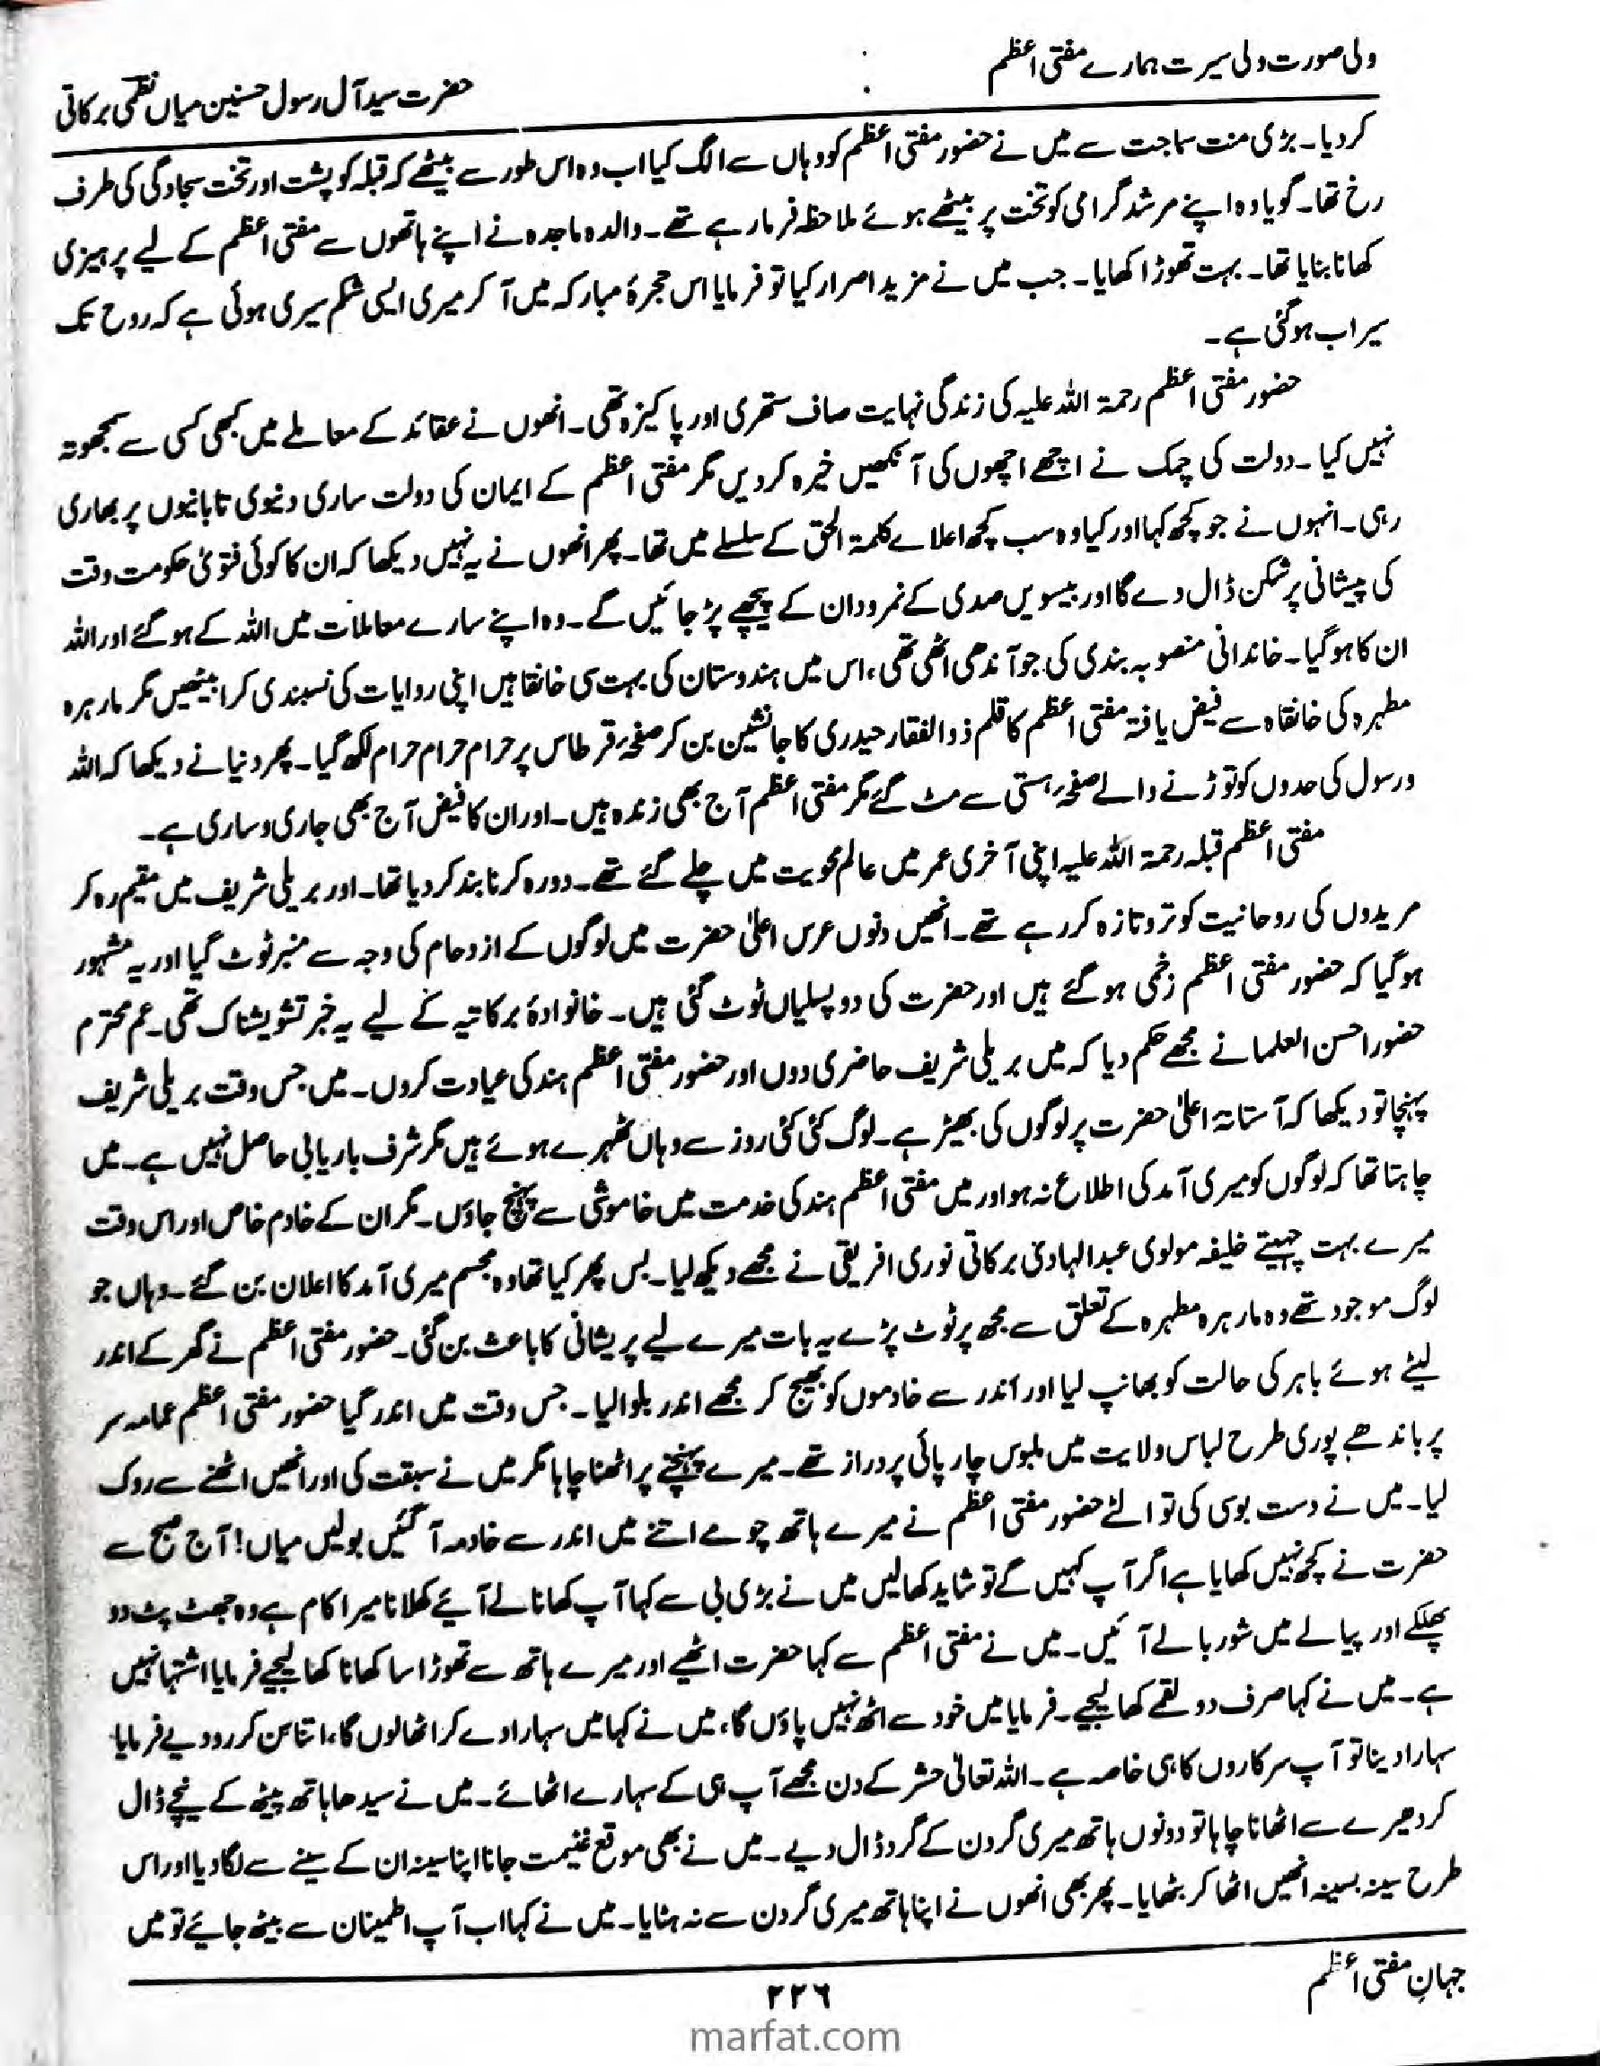 ولی صورت ولی سیرت ہمارے مفتی اعظم
حضرت سید آل رسول حسنین میاں نظمی برکاتی
کردیا۔ بڑی منت سماجت سے میں نے حضور مفتی اعظم کو وہاں سے الگ کیا اب وہ اس طور سے بیٹھے کہ قبلہ کو پشت اور تخت سجادگی کی طرف
رخ تھا۔ گویا وہ اپنے مرشد گرامی کو تخت پر بیٹھے ہوئے ملاحظہ فرما رہے تھے۔ والدہ ماجدہ نے اپنے ہاتھوں سے مفتی اعظم کے لیے پرہیزی
کھانا بنایا تھا۔ بہت تھوڑا کھایا۔ جب میں نے مزید اصرار کیا تو فرمایا اس حجرۂ مبارکہ میں آ کر میری ایسی شکم سیری ہوئی ہے کہ روح تک
سیراب ہوگئی ہے۔
حضور مفتی اعظم رحمۃ اللہ علیہ کی زندگی نہایت صاف ستھری اور پاکیزہ تھی۔ انھوں نے عقائد کے معاملے میں کبھی کسی سے سمجھوتہ
نہیں کیا۔ دولت کی چمک نے اچھے اچھوں کی آنکھیں خیرہ کردیں مگر مفتی اعظم کے ایمان کی دولت ساری دنیوی تابانیوں پر بھاری
رہی۔ انہوں نے جو کچھ کہا اور کیا وہ سب کچھ اعلاے کلمۃ الحق کے سلسلے میں تھا۔ پھر انھوں نے یہ نہیں دیکھا کہ ان کا کوئی فتویٰ حکومت وقت
کی پیشانی پر شکن ڈال دے گا اور بیسویں صدی کے نمرود ان کے پیچھے پڑ جائیں گے۔ وہ اپنے سارے معاملات میں اللہ کے ہوگئے اور اللہ
ان کا ہوگیا۔ خاندانی منصوبہ بندی کی جو آندھی اٹھی تھی، اس میں ہندوستان کی بہت سی خانقاہیں اپنی روایات کی نسبندی کرا بیٹھیں مگر مارہرہ
مطہرہ کی خانقاہ سے فیض یافتہ مفتی اعظم کا قلم ذوالفقار حیدری کا جانشین بن کر صفحۂ قرطاس پر حرام حرام حرام لکھ گیا۔ پھر دنیا نے دیکھا کہ اللہ
و رسول کی حدوں کو توڑنے والے صفحۂ ہستی سے مٹ گئے مگر مفتی اعظم آج بھی زندہ ہیں۔ اور ان کا فیض آج بھی جاری و ساری ہے۔
مفتی اعظم قبلہ رحمۃ اللہ علیہ اپنی آخری عمر میں عالم محویت میں چلے گئے تھے۔ دورہ کرنا بند کردیا تھا۔ اور بریلی شریف میں مقیم رہ کر
مریدوں کی روحانیت کو تروتازہ کر رہے تھے۔ انھیں دنوں عرس اعلیٰ حضرت میں لوگوں کے ازدحام کی وجہ سے منبر ٹوٹ گیا اور یہ مشہور
ہوگیا کہ حضور مفتی اعظم زخمی ہوگئے ہیں اور حضرت کی دو پسلیاں ٹوٹ گئی ہیں۔ خانوادۂ برکاتیہ کے لیے یہ خبر تشویشناک تھی۔ عم محترم
حضور احسن العلما نے مجھے حکم دیا کہ میں بریلی شریف حاضری دوں اور حضور مفتی اعظم ہند کی عیادت کروں۔ میں جس وقت بریلی شریف
پہنچا تو دیکھا کہ آستانۂ اعلیٰ حضرت پر لوگوں کی بھیڑ ہے۔ لوگ کئی کئی روز سے وہاں ٹھہرے ہوئے ہیں مگر شرف باریابی حاصل نہیں ہے۔ میں
چاہتا تھا کہ لوگوں کو میری آمد کی اطلاع نہ ہو اور میں مفتی اعظم ہند کی خدمت میں خاموشی سے پہنچ جاؤں۔ مگر ان کے خادم خاص اور اس وقت
میرے بہت چہیتے خلیفہ مولوی عبدالہادی برکاتی نوری افریقی نے مجھے دیکھ لیا۔ بس پھر کیا تھا وہ مجسم میری آمد کا اعلان بن گئے۔ وہاں جو
لوگ موجود تھے وہ مارہرہ مطہرہ کے تعلق سے مجھ پر ٹوٹ پڑے یہ بات میرے لیے پریشانی کا باعث بن گئی۔ حضور مفتی اعظم نے گھر کے اندر
لیٹے ہوئے باہر کی حالت کو بھانپ لیا اور اندر سے خادموں کو بھیج کر مجھے اندر بلوا لیا۔ جس وقت میں اندر گیا حضور مفتی اعظم عمامہ سر
پر باندھے پوری طرح لباس ولایت میں ملبوس چارپائی پر دراز تھے۔ میرے پہنچنے پر اٹھنا چاہا مگر میں نے سبقت کی اور انھیں اٹھنے سے روک
لیا۔ میں نے دست بوسی کی تو الٹے حضور مفتی اعظم نے میرے ہاتھ چومے اتنے میں اندر سے خادمہ آگئیں بولیں میاں! آج صبح سے
حضرت نے کچھ نہیں کھایا ہے اگر آپ کہیں گے تو شاید کھالیں میں نے بڑی بی سے کہا آپ کھانا لے آیئے کھلانا میرا کام ہے وہ جھٹ پٹ دو
پھلکے اور پیالے میں شوربا لے آئیں۔ میں نے مفتی اعظم سے کہا حضرت اٹھیے اور میرے ہاتھ سے تھوڑا سا کھانا کھا لیجیے فرمایا اشتہا نہیں
ہے۔ میں نے کہا صرف دو لقمے کھا لیجیے۔ فرمایا میں خود سے اٹھ نہیں پاؤں گا، میں نے کہا میں سہارا دے کر اٹھا لوں گا، اتنا سن کر رو دیے فرمایا
سہارا دینا تو آپ سرکاروں کا ہی خاصہ ہے۔ اللہ تعالیٰ حشر کے دن مجھے آپ ہی کے سہارے اٹھائے۔ میں نے سیدھا ہاتھ پیٹھ کے نیچے ڈال
کر دھیرے سے اٹھانا چاہا تو دونوں ہاتھ میری گردن کے گرد ڈال دیے۔ میں نے بھی موقع غنیمت جانا اپنا سینہ ان کے سینے سے لگا دیا اور اس
طرح سینہ بسینہ انھیں اٹھا کر بٹھایا۔ پھر بھی انھوں نے اپنا ہاتھ میری گردن سے نہ ہٹایا۔ میں نے کہا اب آپ اطمینان سے بیٹھ جایئے تو میں
جہانِ مفتی اعظم
۲۲۶
marfat.com